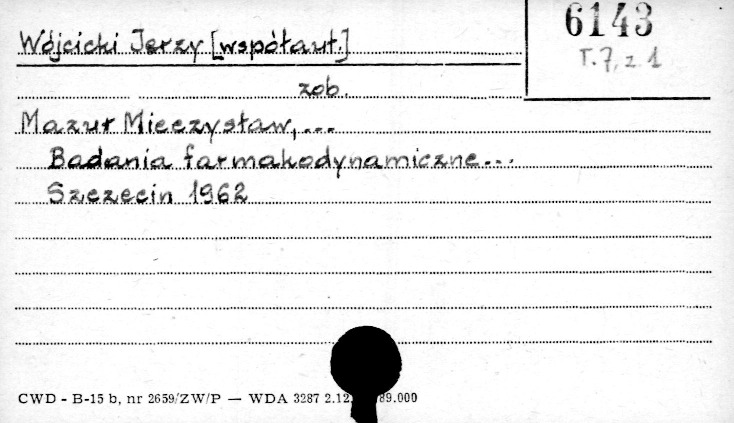 6143
T.7, z.1
Wójcicki Jerzy [współaut.]
zob.
Mazur Mieczysław,...
Badania farmakodynamiczne...
Szczecin 1962
CWD - B-15 b, nr 2659/ZW/P — WDA 3287 2.12 89.000